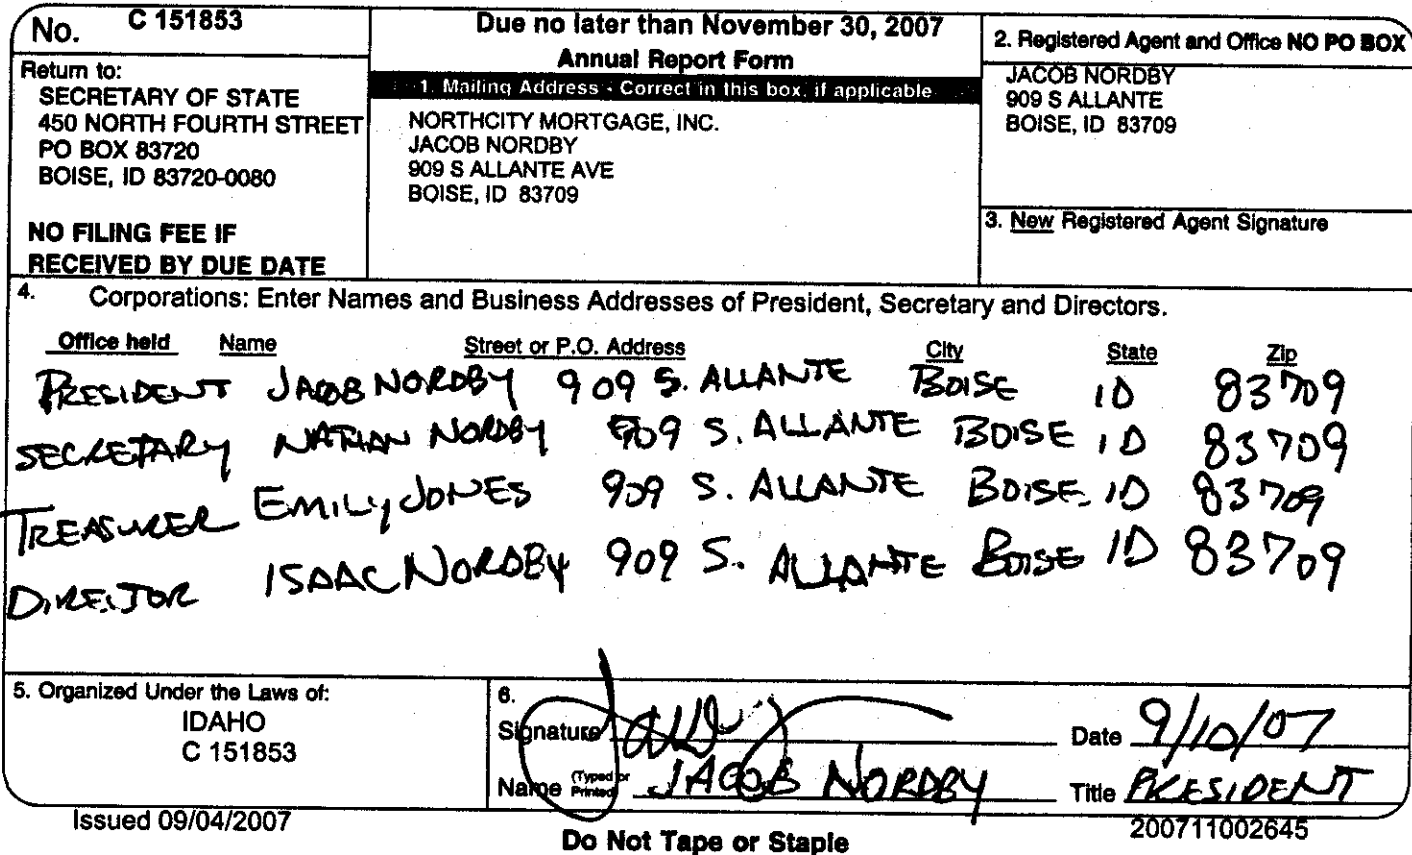 No. C 151853
Return to:
SECRETARY OF STATE
450 NORTH FOURTH STREET
PO BOX 83720
BOISE, ID 83720-0080
NO FILING FEE IF
RECEIVED BY DUE DATE
Due no later than November 30, 2007
Annual Report Form
1. Mailing Address - Correct in this box, if applicable
NORTHCITY MORTGAGE, INC.
JACOB NORDBY
909 S ALLANTE AVE
BOISE, ID 83709
2. Registered Agent and Office NO PO BOX
JACOB NORDBY
909 S ALLANTE
BOISE, ID 83709
3. New Registered Agent Signature
4. Corporations: Enter Names and Business Addresses of President, Secretary and Directors.
Office held Name Street or P.O. Address City State Zip
PRESIDENT JACOB NORDBY 909 S. ALLANTE BOISE ID 83709
SECRETARY NATHAN NORDBY 909 S. ALLANTE BOISE ID 83709
TREASURER EMILY JONES 909 S. ALLANTE BOISE ID 83709
DIRECTOR ISAAC NORDBY 909 S. ALLANTE BOISE ID 83709
5. Organized Under the Laws of:
IDAHO
C 151853
6.
Signature
Date 9/10/07
Name (Typed or Printed) JACOB NORDBY
Title PRESIDENT
Issued 09/04/2007
Do Not Tape or Staple
200711002645